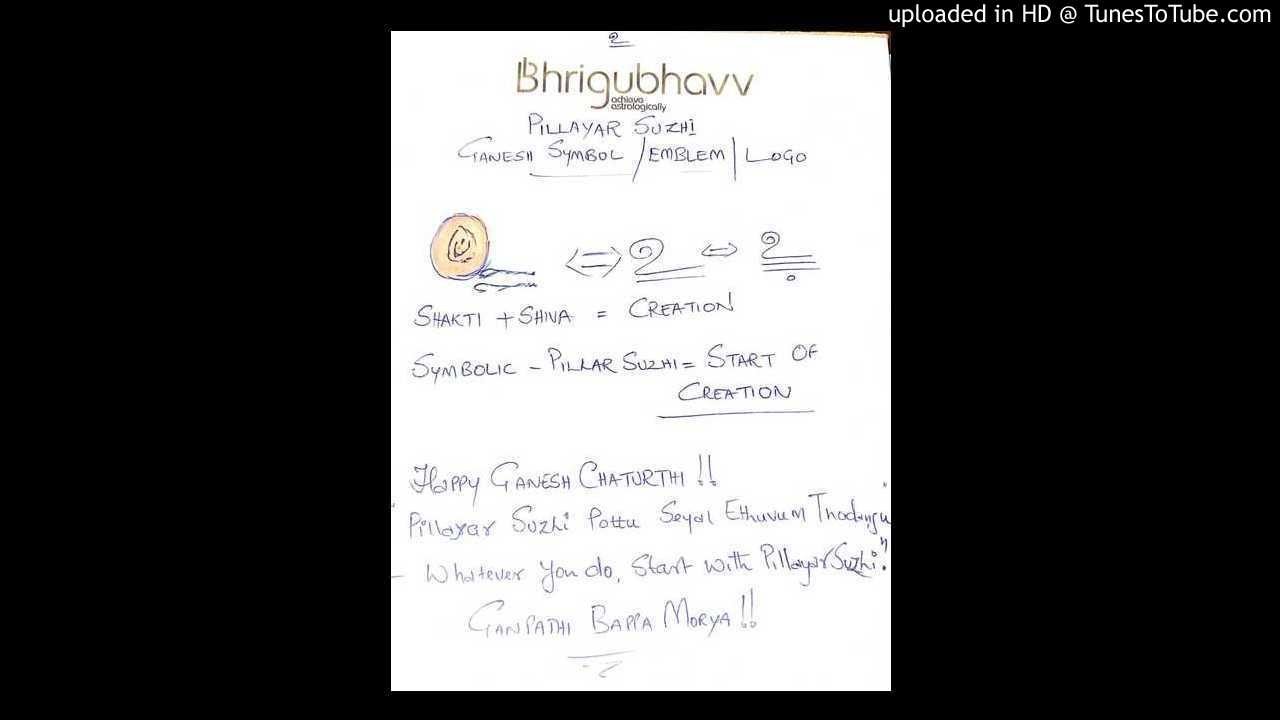 uploaded in HD @ TunesToTube.com
உ
Bhrigubhavv
achieve
astrologically
PILLAYAR SUZHI
GANESH SYMBOL / EMBLEM | LOGO
⇔ உ ⇔ உ
SHAKTI + SHIVA = CREATION
SYMBOLIC - PILLAR SUZHI = START OF
CREATION
HAPPY GANESH CHATURTHI !!
"Pillayar Suzhi Pottu Seyal Ethuvum Thodangu
- Whatever you do, start with Pillayar Suzhi."
GANPATHI BAPPA MORYA !!